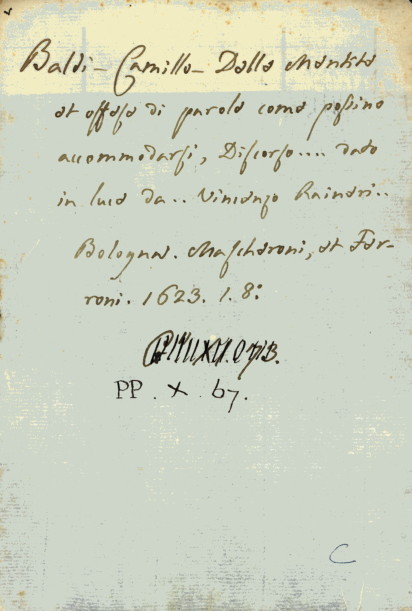 Baldi - Camillo - Delle Mentite
et offese di parole come possino
accommodarsi, Discorso.... dado
in luce da.. Vincenzo Raineri..
Bologna. Mascheroni, et Fer-
roni. 1623. 1. 8º
PP. X. 67.
C